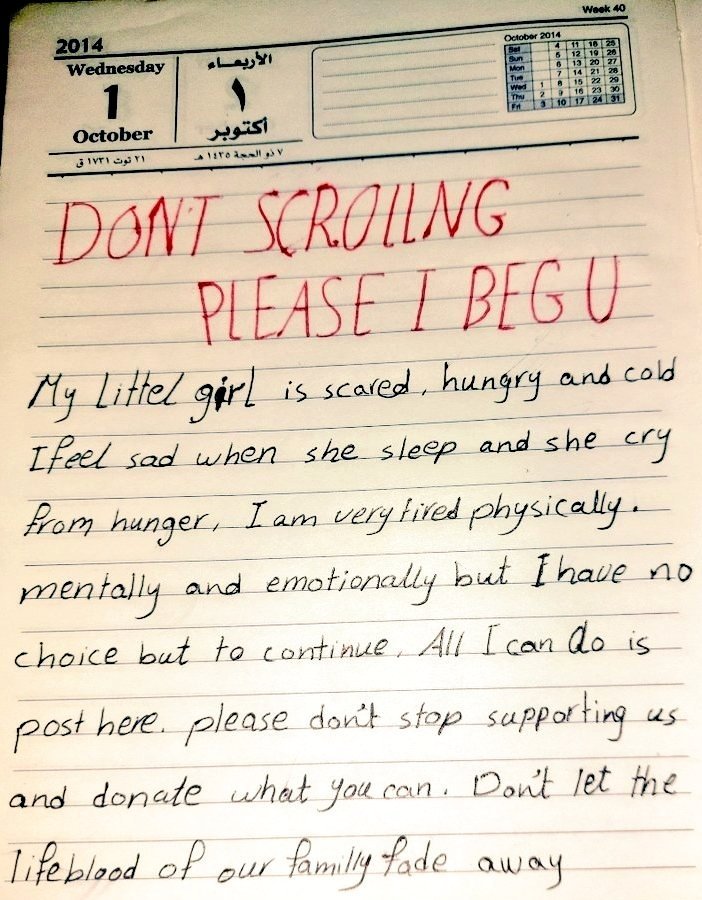 Week 40
2014
Wednesday
1
October
الأربعاء
١
أكتوبر
October 2014
Sat 4 11 18 25
Sun 5 12 19 26
Mon 6 13 20 27
Tue 7 14 21 28
Wed 1 8 15 22 29
Thu 2 9 16 23 30
Fri 3 10 17 24 31
٢١ توت ١٧٣١ ق
٧ ذو الحجة ١٤٣٥ هـ
DONT SCROLLNG
PLEASE I BEG U
My Littel girl is scared, hungry and cold
I feel sad when she sleep and she cry
from hunger, I am very tired physically.
mentally and emotionally but I have no
choice but to continue. All I can do is
post here. please don't stop supporting us
and donate what you can. Don't let the
lifeblood of our familly fade away